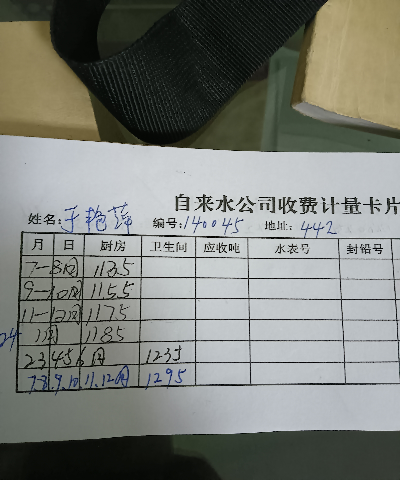 自来水公司收费计量卡片
姓名:于艳萍 编号:140045 地址:442
月 日 厨房 卫生间 应收吨 水表号 封铅号
7-8月 1125
9-10月 1155
11-12月 1175
24 1月 1185
23456月 1235
7.8.9.10.11.12月 1295